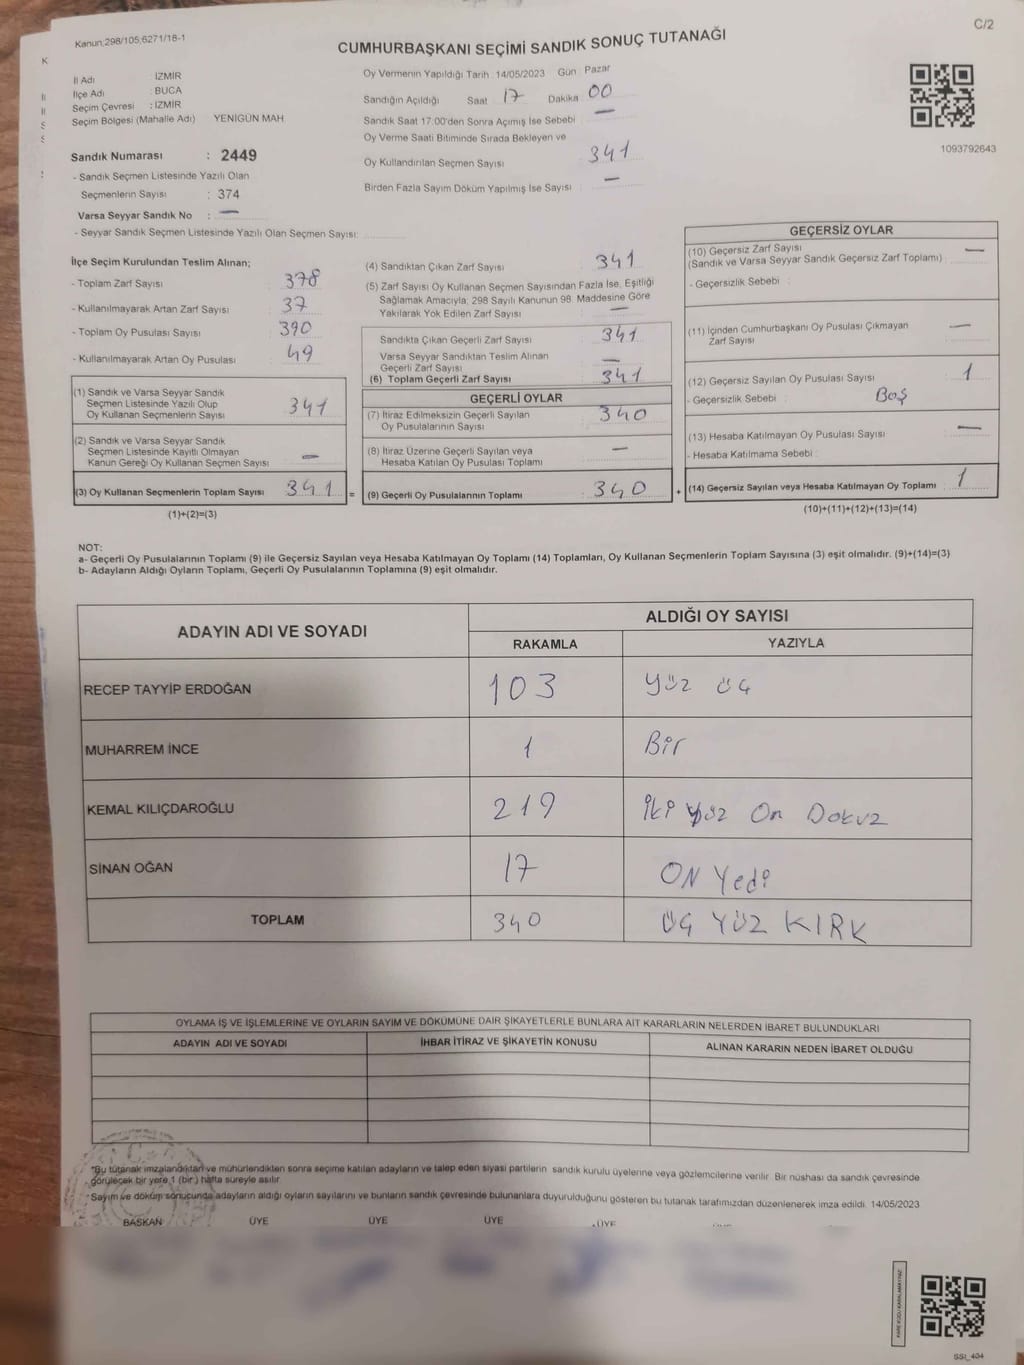 C/2
Kanun;298/105;6271/18-1
CUMHURBAŞKANI SEÇİMİ SANDIK SONUÇ TUTANAĞI
1093792643
İl Adı : İZMİR
İlçe Adı : BUCA
Seçim Çevresi : İZMİR
Seçim Bölgesi (Mahalle Adı) YENİGÜN MAH
Sandık Numarası : 2449
- Sandık Seçmen Listesinde Yazılı Olan
Seçmenlerin Sayısı : 374
Varsa Seyyar Sandık No : —
- Seyyar Sandık Seçmen Listesinde Yazılı Olan Seçmen Sayısı:
Oy Vermenin Yapıldığı Tarih : 14/05/2023 Gün : Pazar
Sandığın Açıldığı Saat 17 Dakika 00
Sandık Saat 17:00'den Sonra Açımış İse Sebebi : —
Oy Verme Saati Bitiminde Sırada Bekleyen ve
Oy Kullandırılan Seçmen Sayısı : 341
Birden Fazla Sayım Döküm Yapılmış İse Sayısı : —
İlçe Seçim Kurulundan Teslim Alınan;
- Toplam Zarf Sayısı : 378
- Kullanılmayarak Artan Zarf Sayısı : 37
- Toplam Oy Pusulası Sayısı : 390
- Kullanılmayarak Artan Oy Pusulası : 49
(1) Sandık ve Varsa Seyyar Sandık
Seçmen Listesinde Yazılı Olup
Oy Kullanan Seçmenlerin Sayısı : 341
(2) Sandık ve Varsa Seyyar Sandık
Seçmen Listesinde Kayıtlı Olmayan
Kanun Gereği Oy Kullanan Seçmen Sayısı : —
(3) Oy Kullanan Seçmenlerin Toplam Sayısı : 341 =
(1)+(2)=(3)
(4) Sandıktan Çıkan Zarf Sayısı : 341
(5) Zarf Sayısı Oy Kullanan Seçmen Sayısından Fazla İse, Eşitliği
Sağlamak Amacıyla; 298 Sayılı Kanunun 98. Maddesine Göre
Yakılarak Yok Edilen Zarf Sayısı : —
Sandıkta Çıkan Geçerli Zarf Sayısı : 341
Varsa Seyyar Sandıktan Teslim Alınan
Geçerli Zarf Sayısı : —
(6) Toplam Geçerli Zarf Sayısı : 341
GEÇERLİ OYLAR
(7) İtiraz Edilmeksizin Geçerli Sayılan
Oy Pusulalarının Sayısı : 340
(8) İtiraz Üzerine Geçerli Sayılan veya
Hesaba Katılan Oy Pusulası Toplamı : —
(9) Geçerli Oy Pusulalarının Toplamı : 340 +
GEÇERSİZ OYLAR
(10) Geçersiz Zarf Sayısı
(Sandık ve Varsa Seyyar Sandık Geçersiz Zarf Toplamı) : —
- Geçersizlik Sebebi :
(11) İçinden Cumhurbaşkanı Oy Pusulası Çıkmayan
Zarf Sayısı : —
(12) Geçersiz Sayılan Oy Pusulası Sayısı : 1
- Geçersizlik Sebebi : Boş
(13) Hesaba Katılmayan Oy Pusulası Sayısı : —
- Hesaba Katılmama Sebebi :
(14) Geçersiz Sayılan veya Hesaba Katılmayan Oy Toplamı : 1
(10)+(11)+(12)+(13)=(14)
NOT:
a- Geçerli Oy Pusulalarının Toplamı (9) ile Geçersiz Sayılan veya Hesaba Katılmayan Oy Toplamı (14) Toplamları, Oy Kullanan Seçmenlerin Toplam Sayısına (3) eşit olmalıdır. (9)+(14)=(3)
b- Adayların Aldığı Oyların Toplamı, Geçerli Oy Pusulalarının Toplamına (9) eşit olmalıdır.
ADAYIN ADI VE SOYADI ALDIĞI OY SAYISI
RAKAMLA YAZIYLA
RECEP TAYYİP ERDOĞAN 103 Yüz üç
MUHARREM İNCE 1 Bir
KEMAL KILIÇDAROĞLU 219 İki yüz On Dokuz
SİNAN OĞAN 17 ON Yedi
TOPLAM 340 ÜÇ YÜZ KIRK
OYLAMA İŞ VE İŞLEMLERİNE VE OYLARIN SAYIM VE DÖKÜMÜNE DAİR ŞİKAYETLERLE BUNLARA AİT KARARLARIN NELERDEN İBARET BULUNDUKLARI
ADAYIN ADI VE SOYADI İHBAR İTİRAZ VE ŞİKAYETİN KONUSU ALINAN KARARIN NEDEN İBARET OLDUĞU
*Bu tutanak imzalandıktan ve mühürlendikten sonra seçime katılan adayların ve talep eden siyasi partilerin sandık kurulu üyelerine veya gözlemcilerine verilir. Bir nüshası da sandık çevresinde
görülecek bir yere 1 (bir) hafta süreyle asılır.
*Sayım ve döküm sonucunda adayların aldığı oyların sayılarını ve bunların sandık çevresinde bulunanlara duyurulduğunu gösteren bu tutanak tarafımızdan düzenlenerek imza edildi. 14/05/2023
BAŞKAN ÜYE ÜYE ÜYE ÜYE
SSI_404